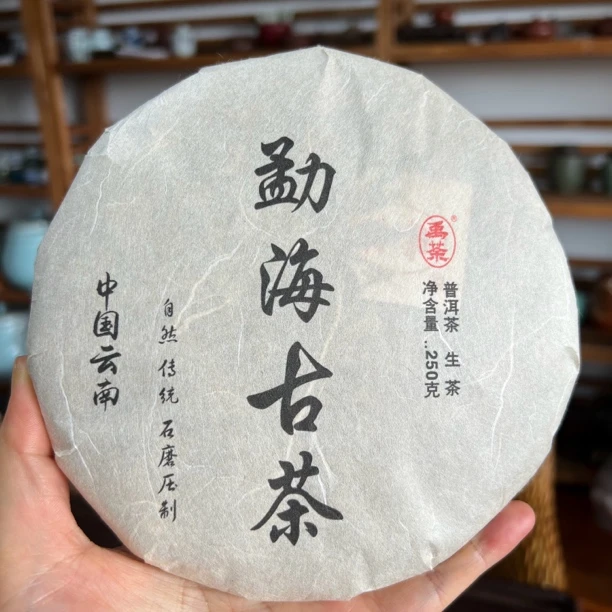 勐海古茶
禹茶
®
普洱茶 生茶
净含量:250克
自然 传统 石磨压制
中国云南